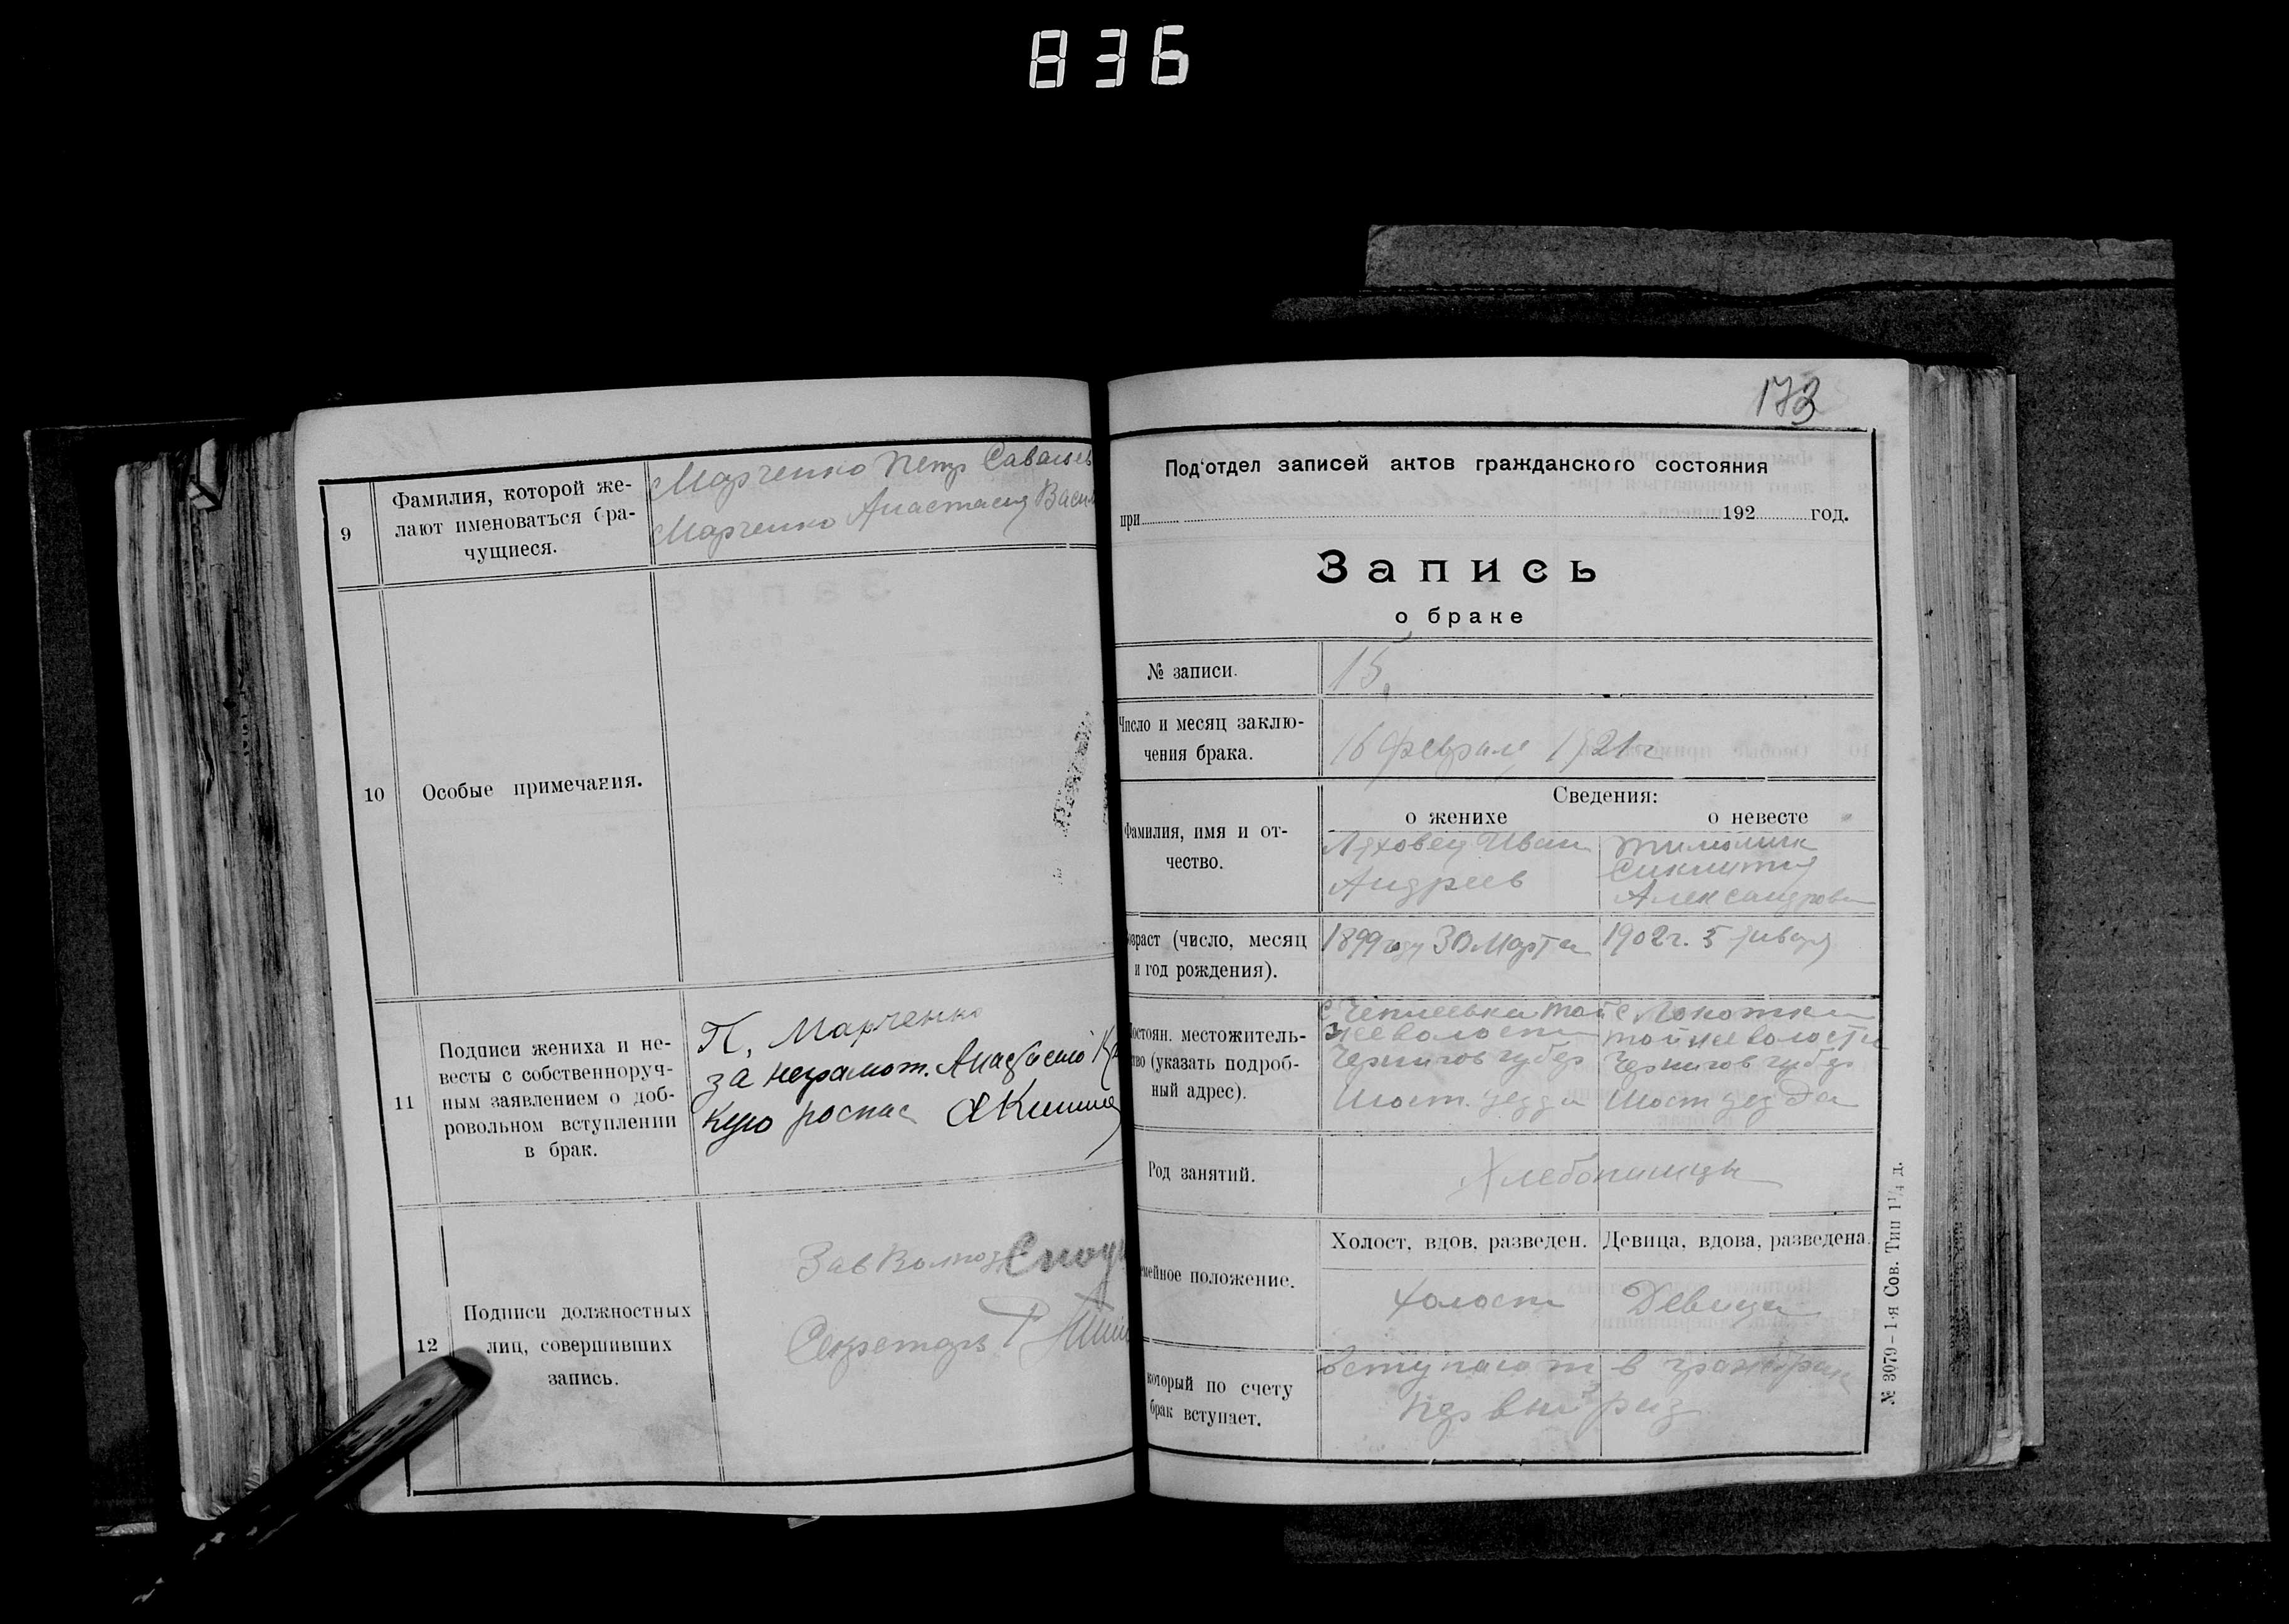 836
9
Фамилия, которой же-
лают именоваться бра-
чущиеся.
Марченко Петр Савельев
Марченко Анастасия Васил
10
Особые примечания.
11
Подписи жениха и не-
весты с собственноруч-
ным заявлением о доб-
ровольном вступлении
в брак.
П. Марченко
за неграмот. Анастасию
кую роспис
12
Подписи должностных
лиц, совершивших
запись.
Зав
Секретарь
173
Под'отдел записей актов гражданского состояния
при 192 год.
Запись
о браке
№ записи.
15.
Число и месяц заклю-
чения брака.
16 февраля 1921 г
Сведения:
о женихе
о невесте
Фамилия, имя и от-
чество.
Ляховец Иван
Андреев
Александровн
зраст (число, месяц
и год рождения).
1899 году 30 Марта
1902 г. 5 января
остоян. местожитель-
тво (указать подроб-
ный адрес).
с Чепиевка той
же волости
Чернигов губер
уезда
с Локотки
той же волости
Чернигов губер
уезда
Род занятий.
Хлебопашцы
мейное положение.
Холост, вдов, разведен.
Девица, вдова, разведена.
холост
Девица
который по счету
брак вступает.
вступают в
первый раз
№ 3079–1-я Сов. Тип 1¼ д.